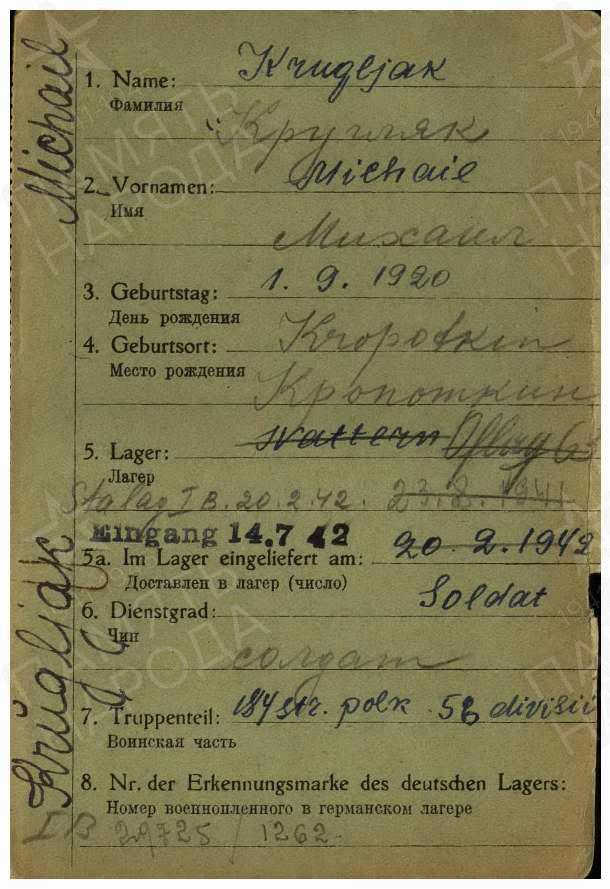 Michail
1. Name: Krugljak
Фамилия
Кругляк
2. Vornamen: Michail
Имя
Михаил
3. Geburtstag: 1. 9. 1920
День рождения
4. Geburtsort: Kropotkin
Место рождения
Кропоткин
5. Lager: Wattern Oflag 63
Лагер
Stalag I B. 20.2.42. 23.8.1941
Eingang 14.7 42
5a. Im Lager eingeliefert am: 20. 2. 1942
Доставлен в лагер (число)
6. Dienstgrad: Soldat
Чин
солдат
7. Truppenteil: 184 str. polk 56 divisii
Воинская часть
8. Nr. der Erkennungsmarke des deutschen Lagers:
Номер военнопленного в германском лагере
I B 29725 / 1262
Krugljak
ПАМЯТЬ
НАРОДА